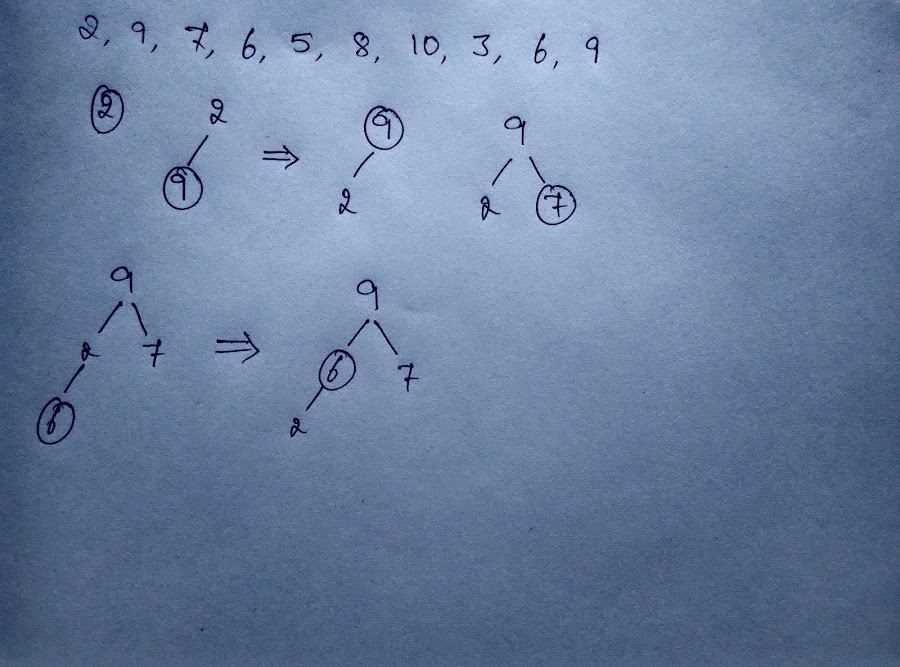 2, 9, 7, 6, 5, 8, 10, 3, 6, 9
2 2 ⇒ 9 9
9 2 2 7
9 ⇒ 9
2 7 6 7
6 2